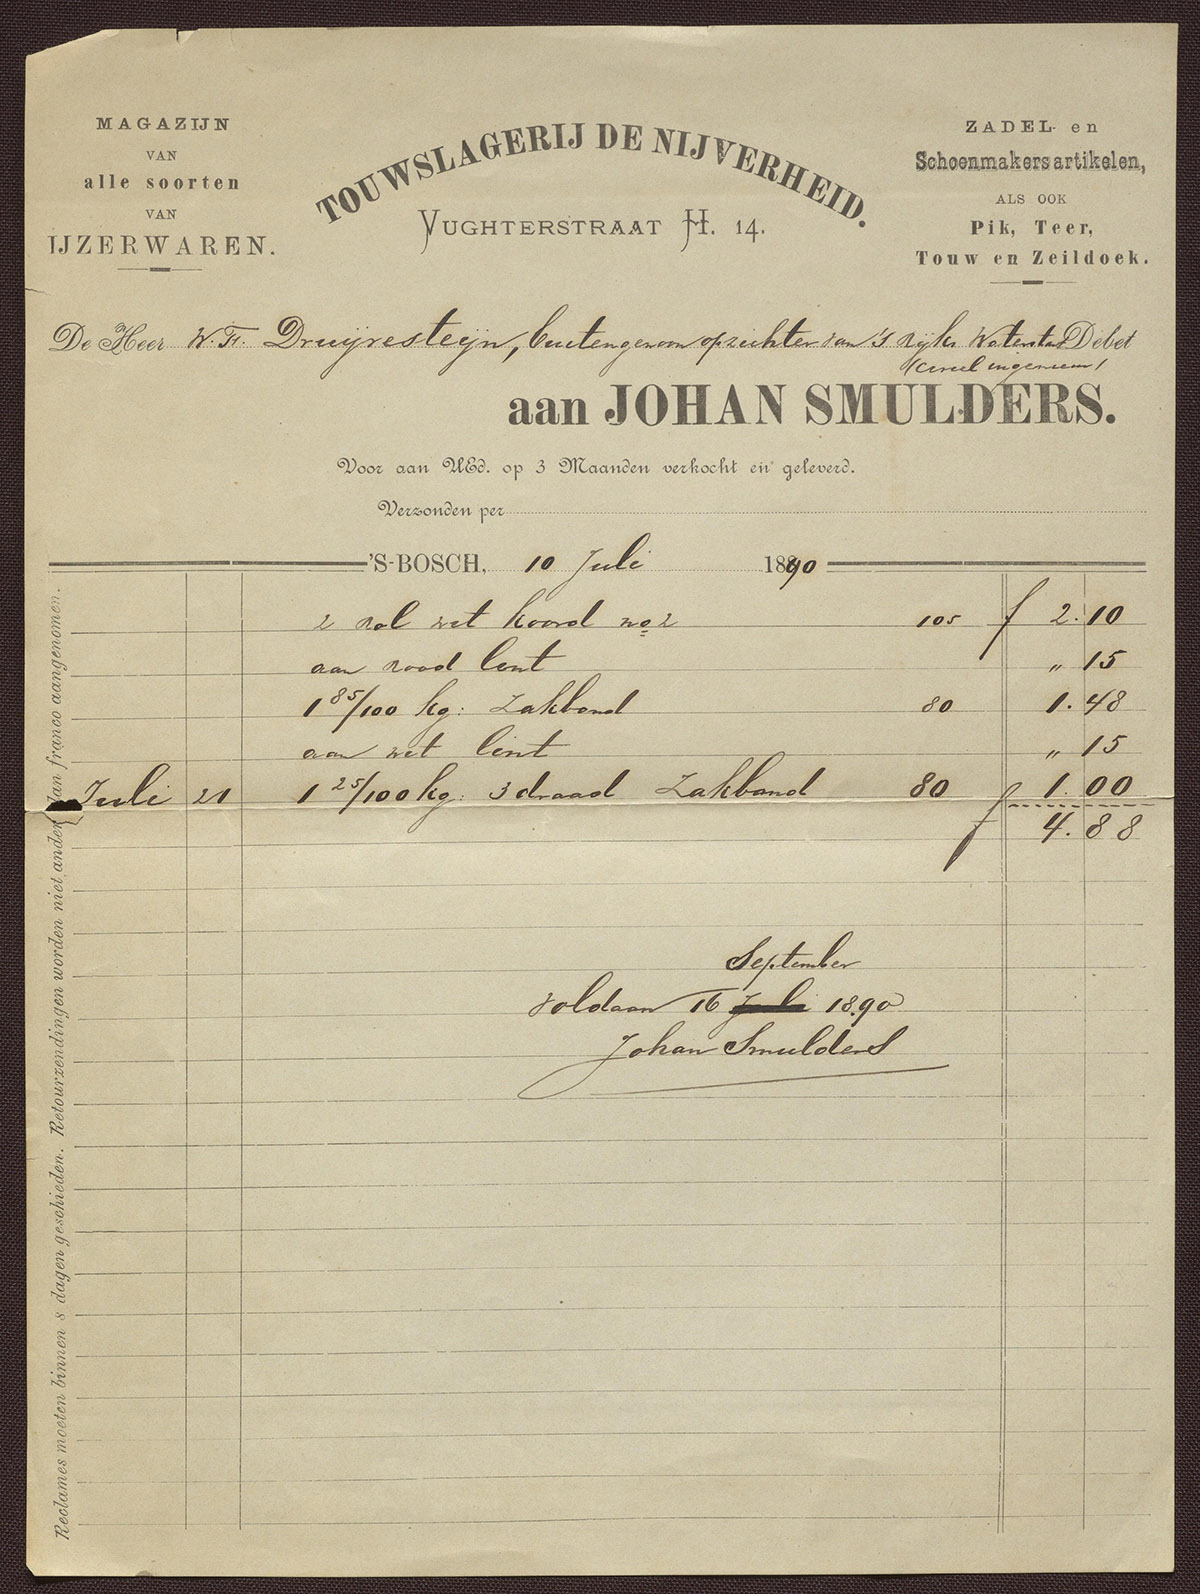 MAGAZIJN
VAN
alle soorten
VAN
IJZERWAREN.
TOUWSLAGERIJ DE NIJVERHEID.
VUGHTERSTRAAT H. 14.
ZADEL- en
Schoenmakersartikelen,
ALS OOK
Pik, Teer,
Touw en Zeildoek.
De Heer W. F. Druijvesteijn, buitengewoon opzichter van 's Rijks Waterstaat Debet
(civiel ingenieur)
aan JOHAN SMULDERS.
Voor aan UEd. op 3 Maanden verkocht en geleverd.
Verzonden per
'S-BOSCH, 10 Juli 1890
2 rol wit koord no 2 105 f 2.10
aan rood lint " 15
1 85/100 kg: Zakband 80 1.48
aan wit lint " 15
Juli 21 1 25/100 kg: 3 draad Zakband 80 1.00
f 4.88
September
Voldaan 16 Juli 1890
Johan Smulders
Reclames moeten binnen 8 dagen geschieden. Retourzendingen worden niet ander dan franco aangenomen.